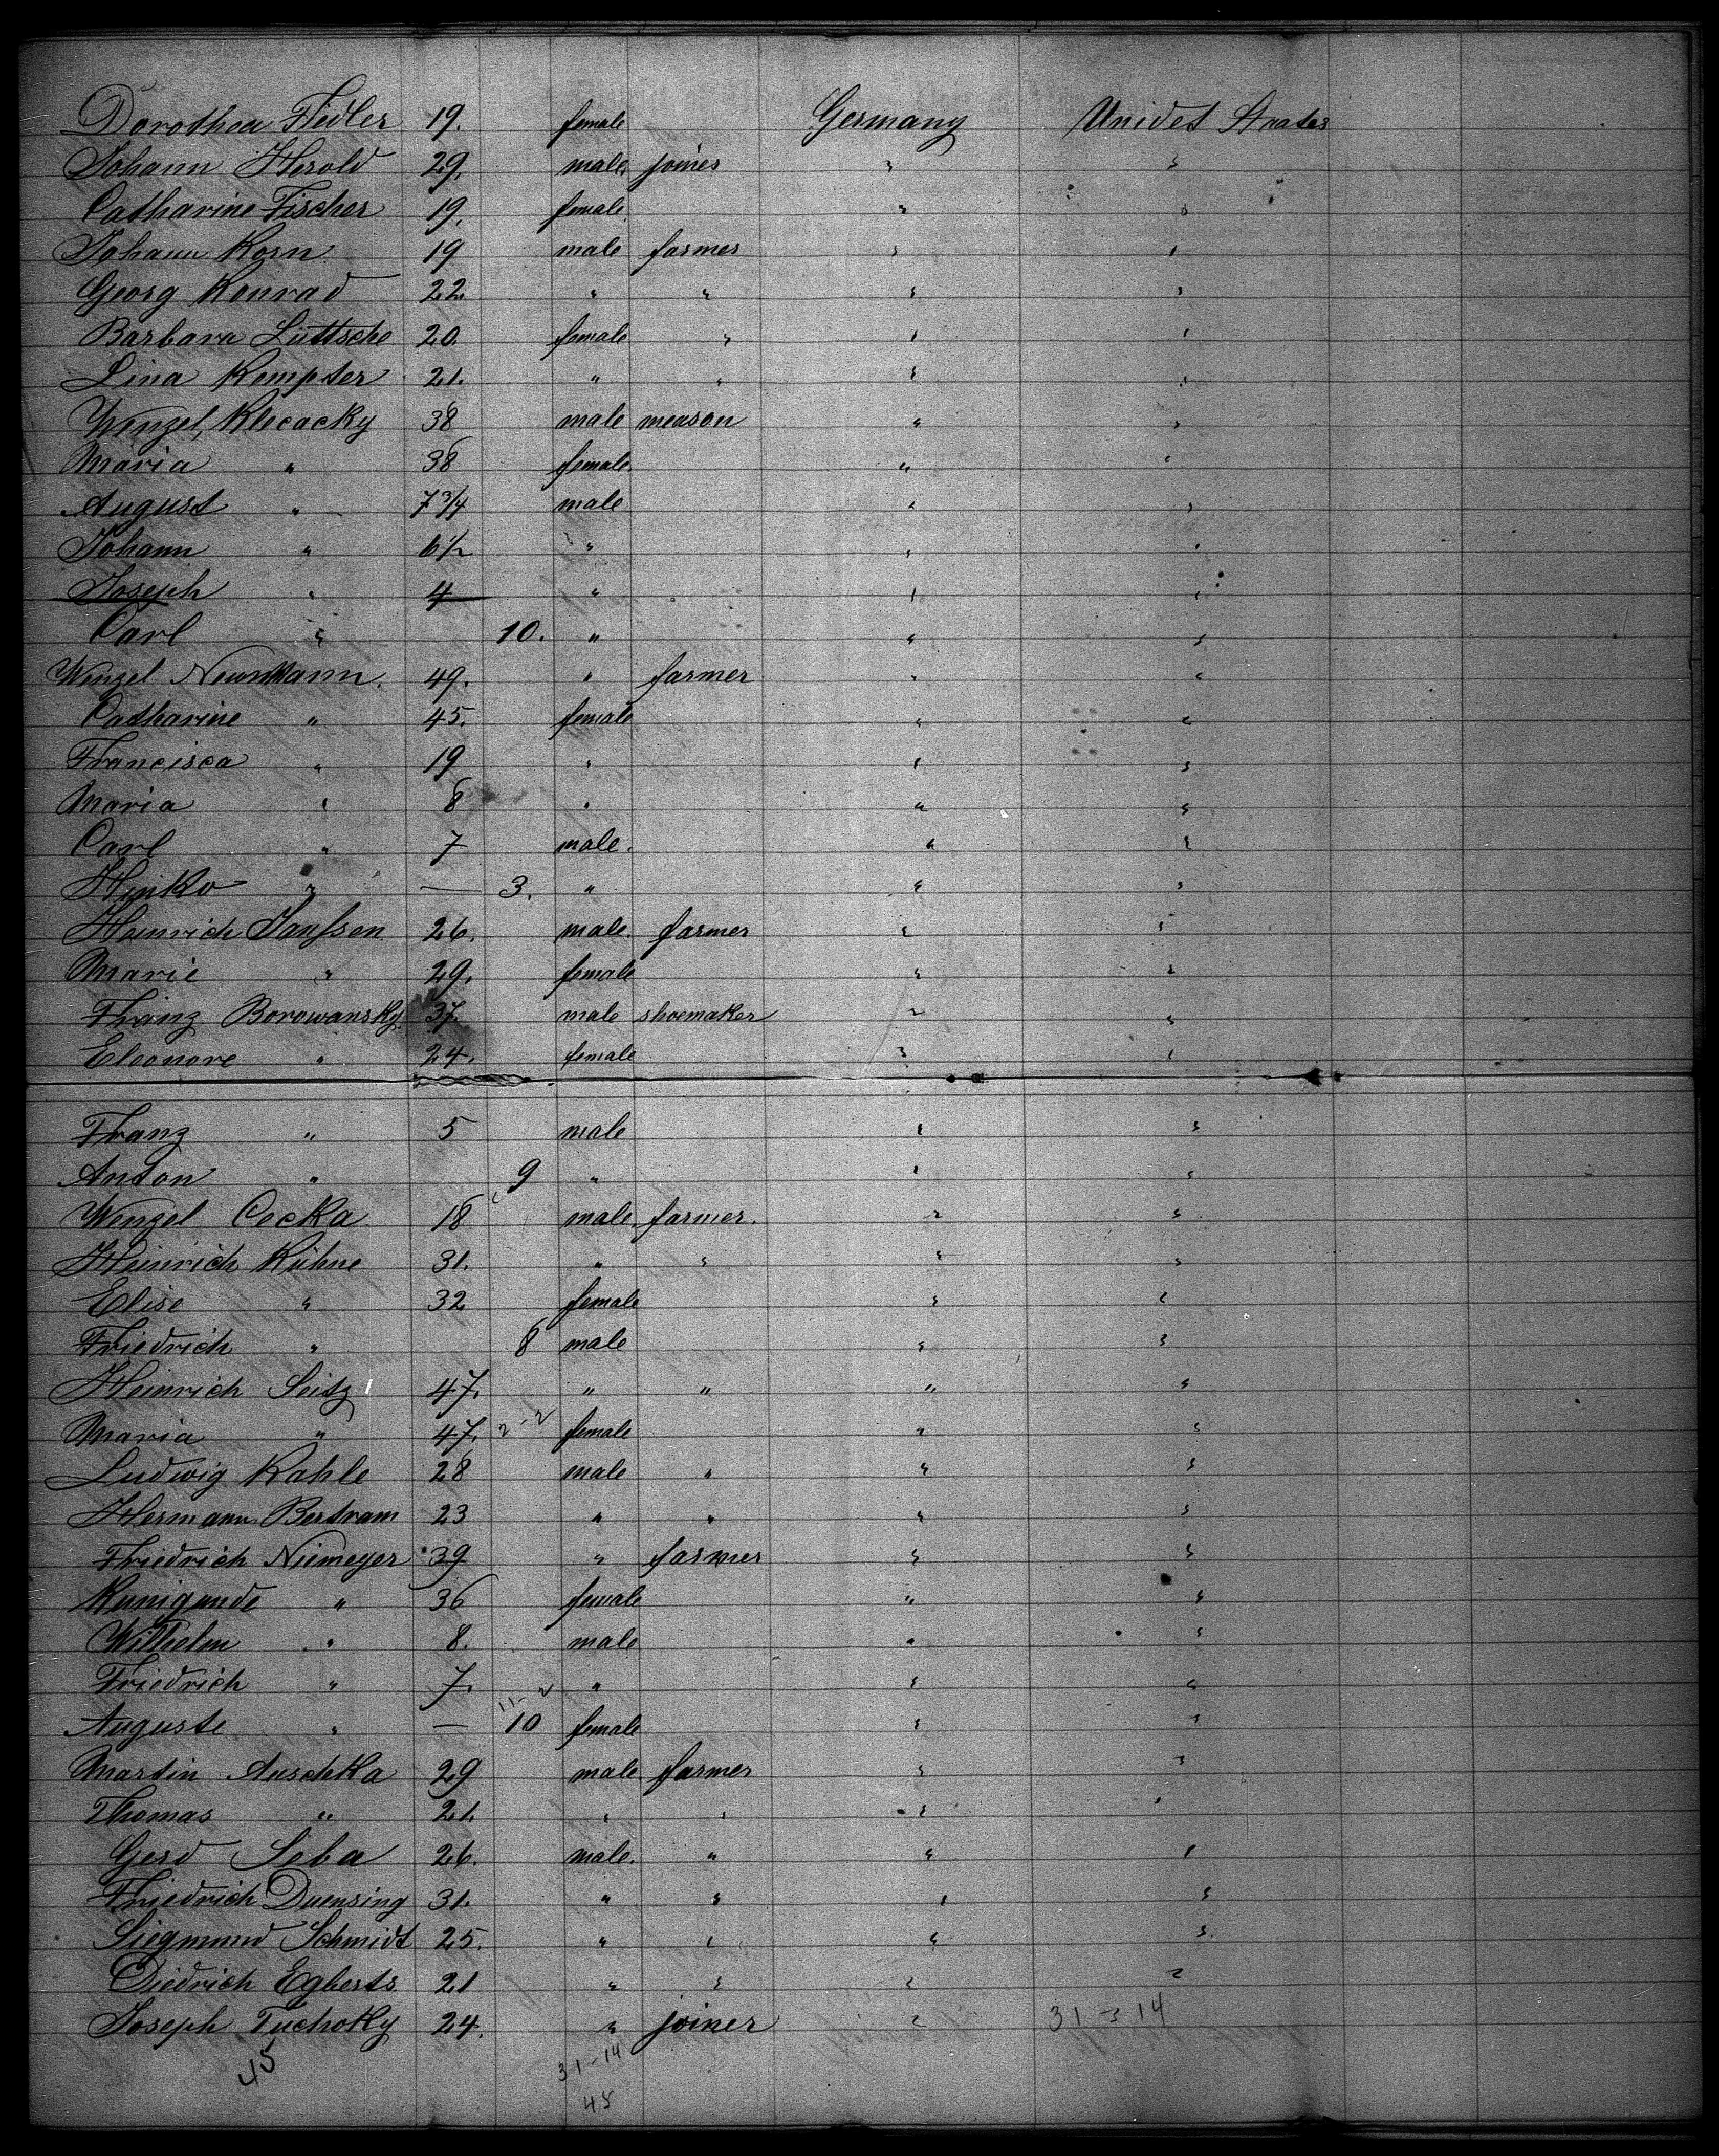 Dorothea Fidler 19. female Germany Unidet Staates
Johann Herold 29. male. joiner " "
Catharine Fischer 19. female " "
Johann Korn 19 male farmer " "
Georg Konrad 22 " " " "
Barbara Lüttsche 20. female " " "
Lina Kempter 21. " " " "
Wenzel, Klecacky 38 male meason " "
Maria " 38 female " "
August " 7 3/4 male " "
Johann " 6 1/2 " " "
Joseph " 4 " " "
Carl " 10. " " "
Wenzel Newmann. 49. " farmer " "
Catharine " 45. female " "
Francisca " 19 " " "
Maria " 8 " " "
Carl " 7 male. " "
Hinko " — 3. " " "
Heinrich Janssen 26. male. farmer " "
Marie " 29. female " "
Franz Borowansky. 37. male shoemaker " "
Eleonore " 24. female " "
Franz " 5 male " "
Anton " 9 " " "
Wenzel Cecka 18 male. farmer. " "
Heinrich Kühne 31. " " " "
Elise " 32 female " "
Friedrich " 8 male " "
Heinrich Seitz 47. " " " "
Maria " 47. female " "
Ludwig Kahle 28 male " " "
Hermann Bertram 23 " " " "
Friedrich Niemeyer 39 " farmer " "
Kunigunde " 36 female " "
Wilhelm " 8. male " "
Friedrich " 7. " " "
Auguste " — 10 female " "
Martin Auschka 29 male farmer " "
Thomas " 21. " " " "
Gerd Seba 26. male. " " "
Friedrich Duensing 31. " " " "
Siegmund Schmidt 25. " " " "
Diedrich Egberts 21 " " " "
Joseph Tuchoky 24. " joiner " 31-14
45 31-14
45